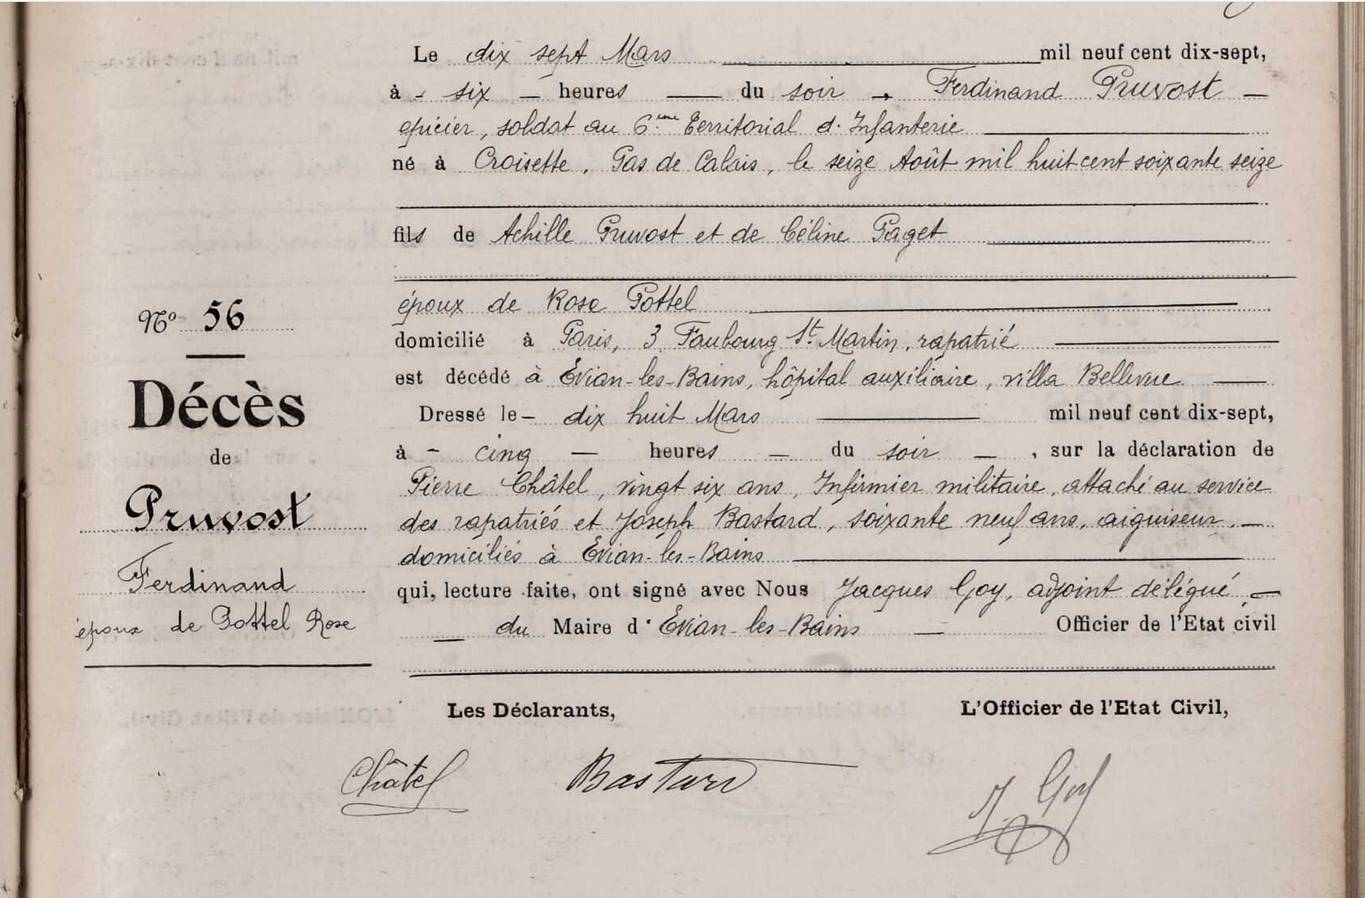 Le dix sept Mars mil neuf cent dix-sept,
à - six - heures du soir, Ferdinand Pruvost -
épicier, soldat au 6ème Territorial d'Infanterie
né à Croisette, Pas de Calais, le seize Août mil huit cent soixante seize
fils de Achille Pruvost et de Céline Paget
époux de Rose Pottel
domicilié à Paris, 3 Faubourg St Martin, rapatrié
est décédé à Évian-les-Bains, hôpital auxiliaire, villa Bellevue
Dressé le - dix huit Mars mil neuf cent dix-sept,
à - cinq - heures - du soir - , sur la déclaration de
Pierre Châtel, vingt six ans, Infirmier militaire, attaché au service
des rapatriés et Joseph Bastard, soixante neuf ans, aiguiseur, -
domiciliés à Évian-les-Bains
qui, lecture faite, ont signé avec Nous Jacques Goy, adjoint délégué, -
- du Maire d'Évian-les-Bains - Officier de l'Etat civil
No 56
Décès
de
Pruvost
Ferdinand
époux de Pottel Rose
Les Déclarants,
L'Officier de l'Etat Civil,
Châtel
Bastard
J. Goy